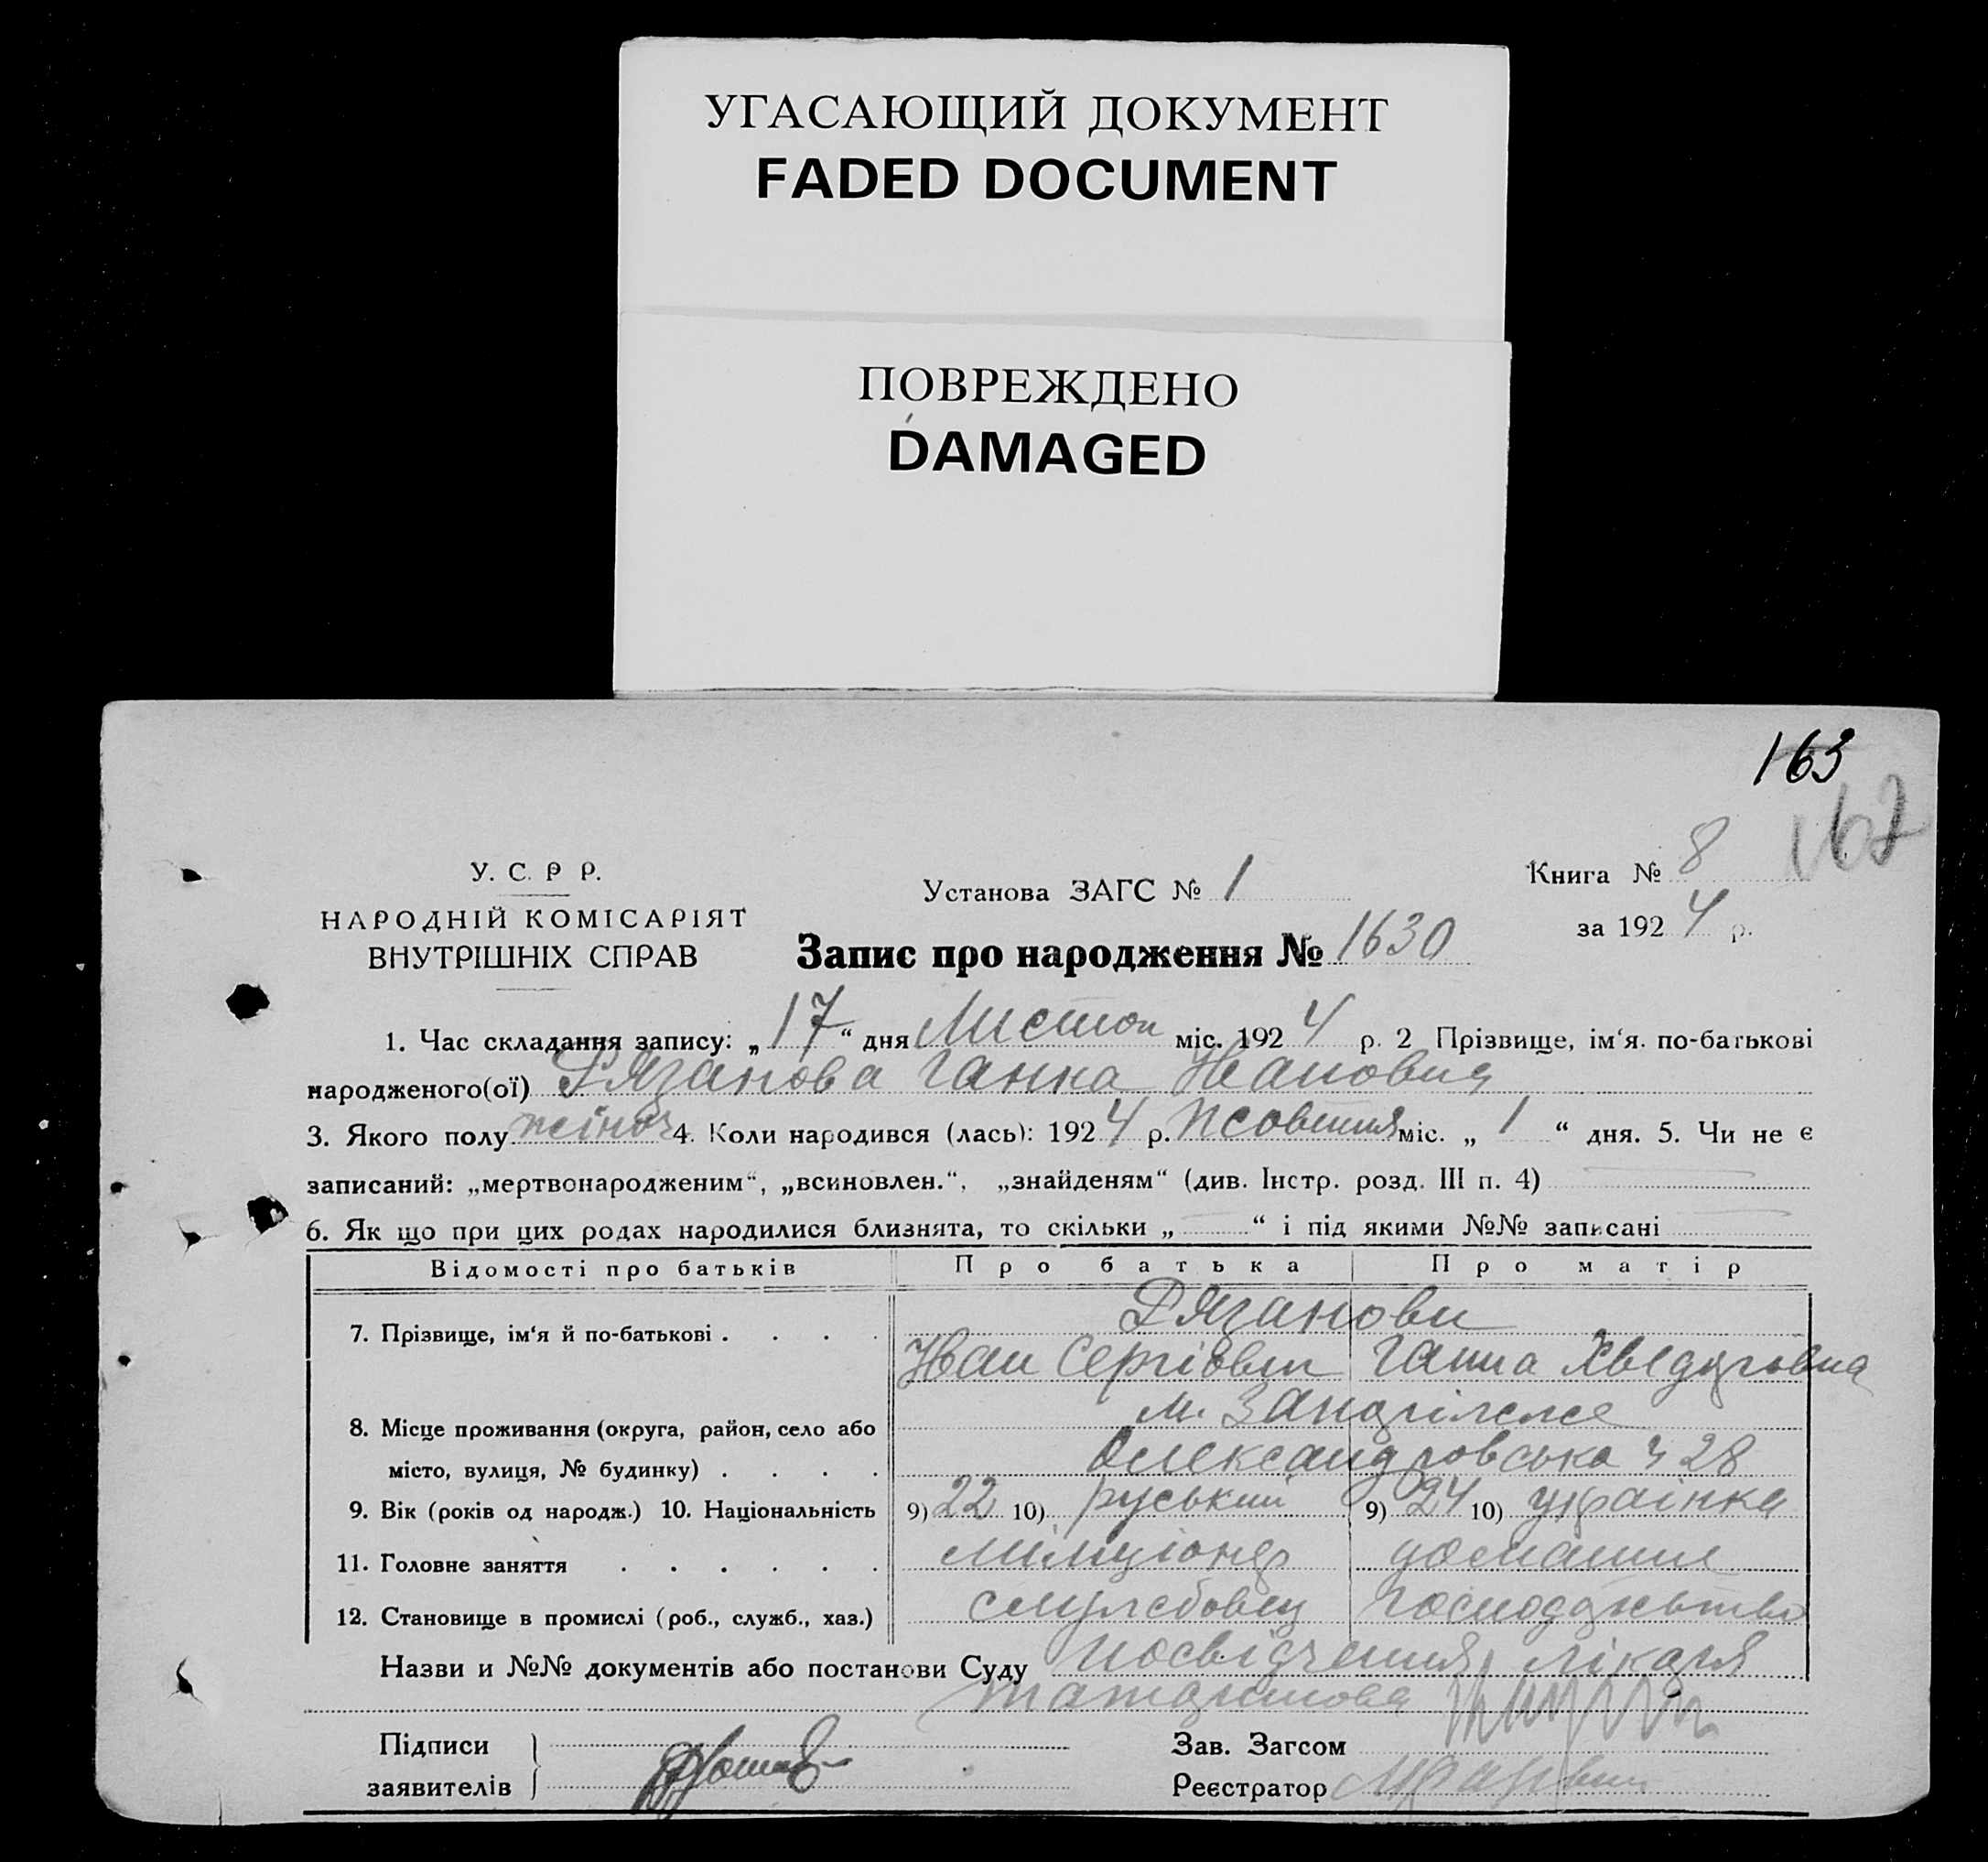 УГАСАЮЩИЙ ДОКУМЕНТ
FADED DOCUMENT
ПОВРЕЖДЕНО
DAMAGED
163
162
У. С. Р Р.
НАРОДНІЙ КОМІСАРІЯТ
ВНУТРІШНІХ СПРАВ
Установа ЗАГС № 1
Книга № 8
за 1924 р.
Запис про народження № 1630
1. Час складання запису: „17“ дня Листоп міс. 1924 р. 2 Прізвище, ім‘я. по-батькові
народженого(ої) Рязанова Ганна Ивановна
3. Якого полу жіноч 4. Коли народився (лась): 1924 р. Жовтня міс. „1“ дня. 5. Чи не є
записаний: „мертвонародженим“, „всиновлен.“, „знайденям“ (див. Інстр. розд. III п. 4)
6. Як що при цих родах народилися близнята, то скільки „ “ і під якими №№ записані
Відомості про батьків Про батька Про матір
7. Прізвище, ім‘я й по-батькові . . . . Рязанови
Иван Сергіович Ганна Хведоровна
8. Місце проживання (округа, район, село або м. Запоріжже
місто, вулиця, № будинку) . . . . Олександровська 28
9. Вік (років од народж.) 10. Національність 9) 22 10) руський 9) 24 10) українка
11. Головне заняття . . . . . . міліціонер домашнє
12. Становище в промислі (роб., служб., хаз.) службовец господарьство
Назви и №№ документів або постанови Суду посвідчення лікаря
Підписи
заявителів
Зав. Загсом
Реєстратор